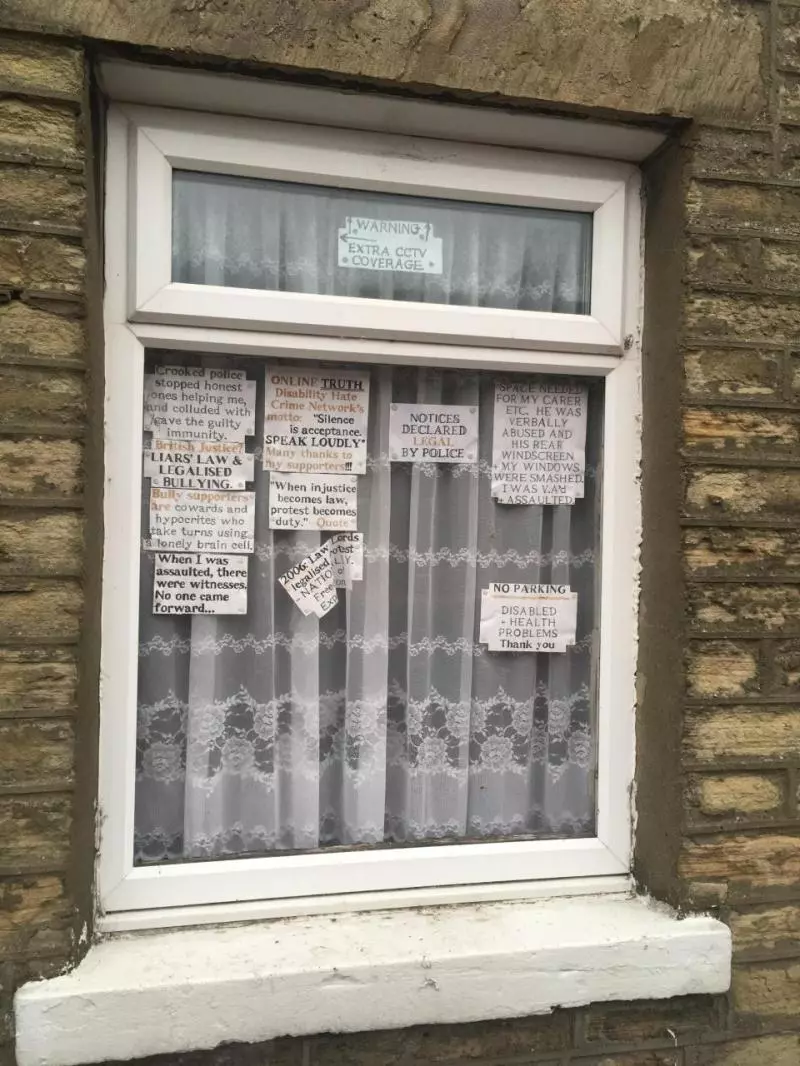 WARNING
EXTRA CCTV
COVERAGE
Crooked police
stopped honest
ones helping me,
and colluded with
gave the guilty
immunity.
British Justice?
LIARS' LAW &
LEGALISED
BULLYING.
Bully supporters
are cowards and
hypocrites who
take turns using
a lonely brain cell.
When I was
assaulted, there
were witnesses.
No one came
forward...
ONLINE TRUTH
Disability Hate
Crime Network's
motto: "Silence
is acceptance.
SPEAK LOUDLY"
Many thanks to
my supporters!!!
"When injustice
becomes law,
protest becomes
duty." Quote
2006: Law Lords
legalised
NOTICES
DECLARED
LEGAL
BY POLICE
SPACE NEEDED
FOR MY CARER
ETC. HE WAS
VERBALLY
ABUSED AND
HIS REAR
WINDSCREEN
MY WINDOWS
WERE SMASHED.
I WAS
ASSAULTED.
NO PARKING
DISABLED
+ HEALTH
PROBLEMS
Thank you